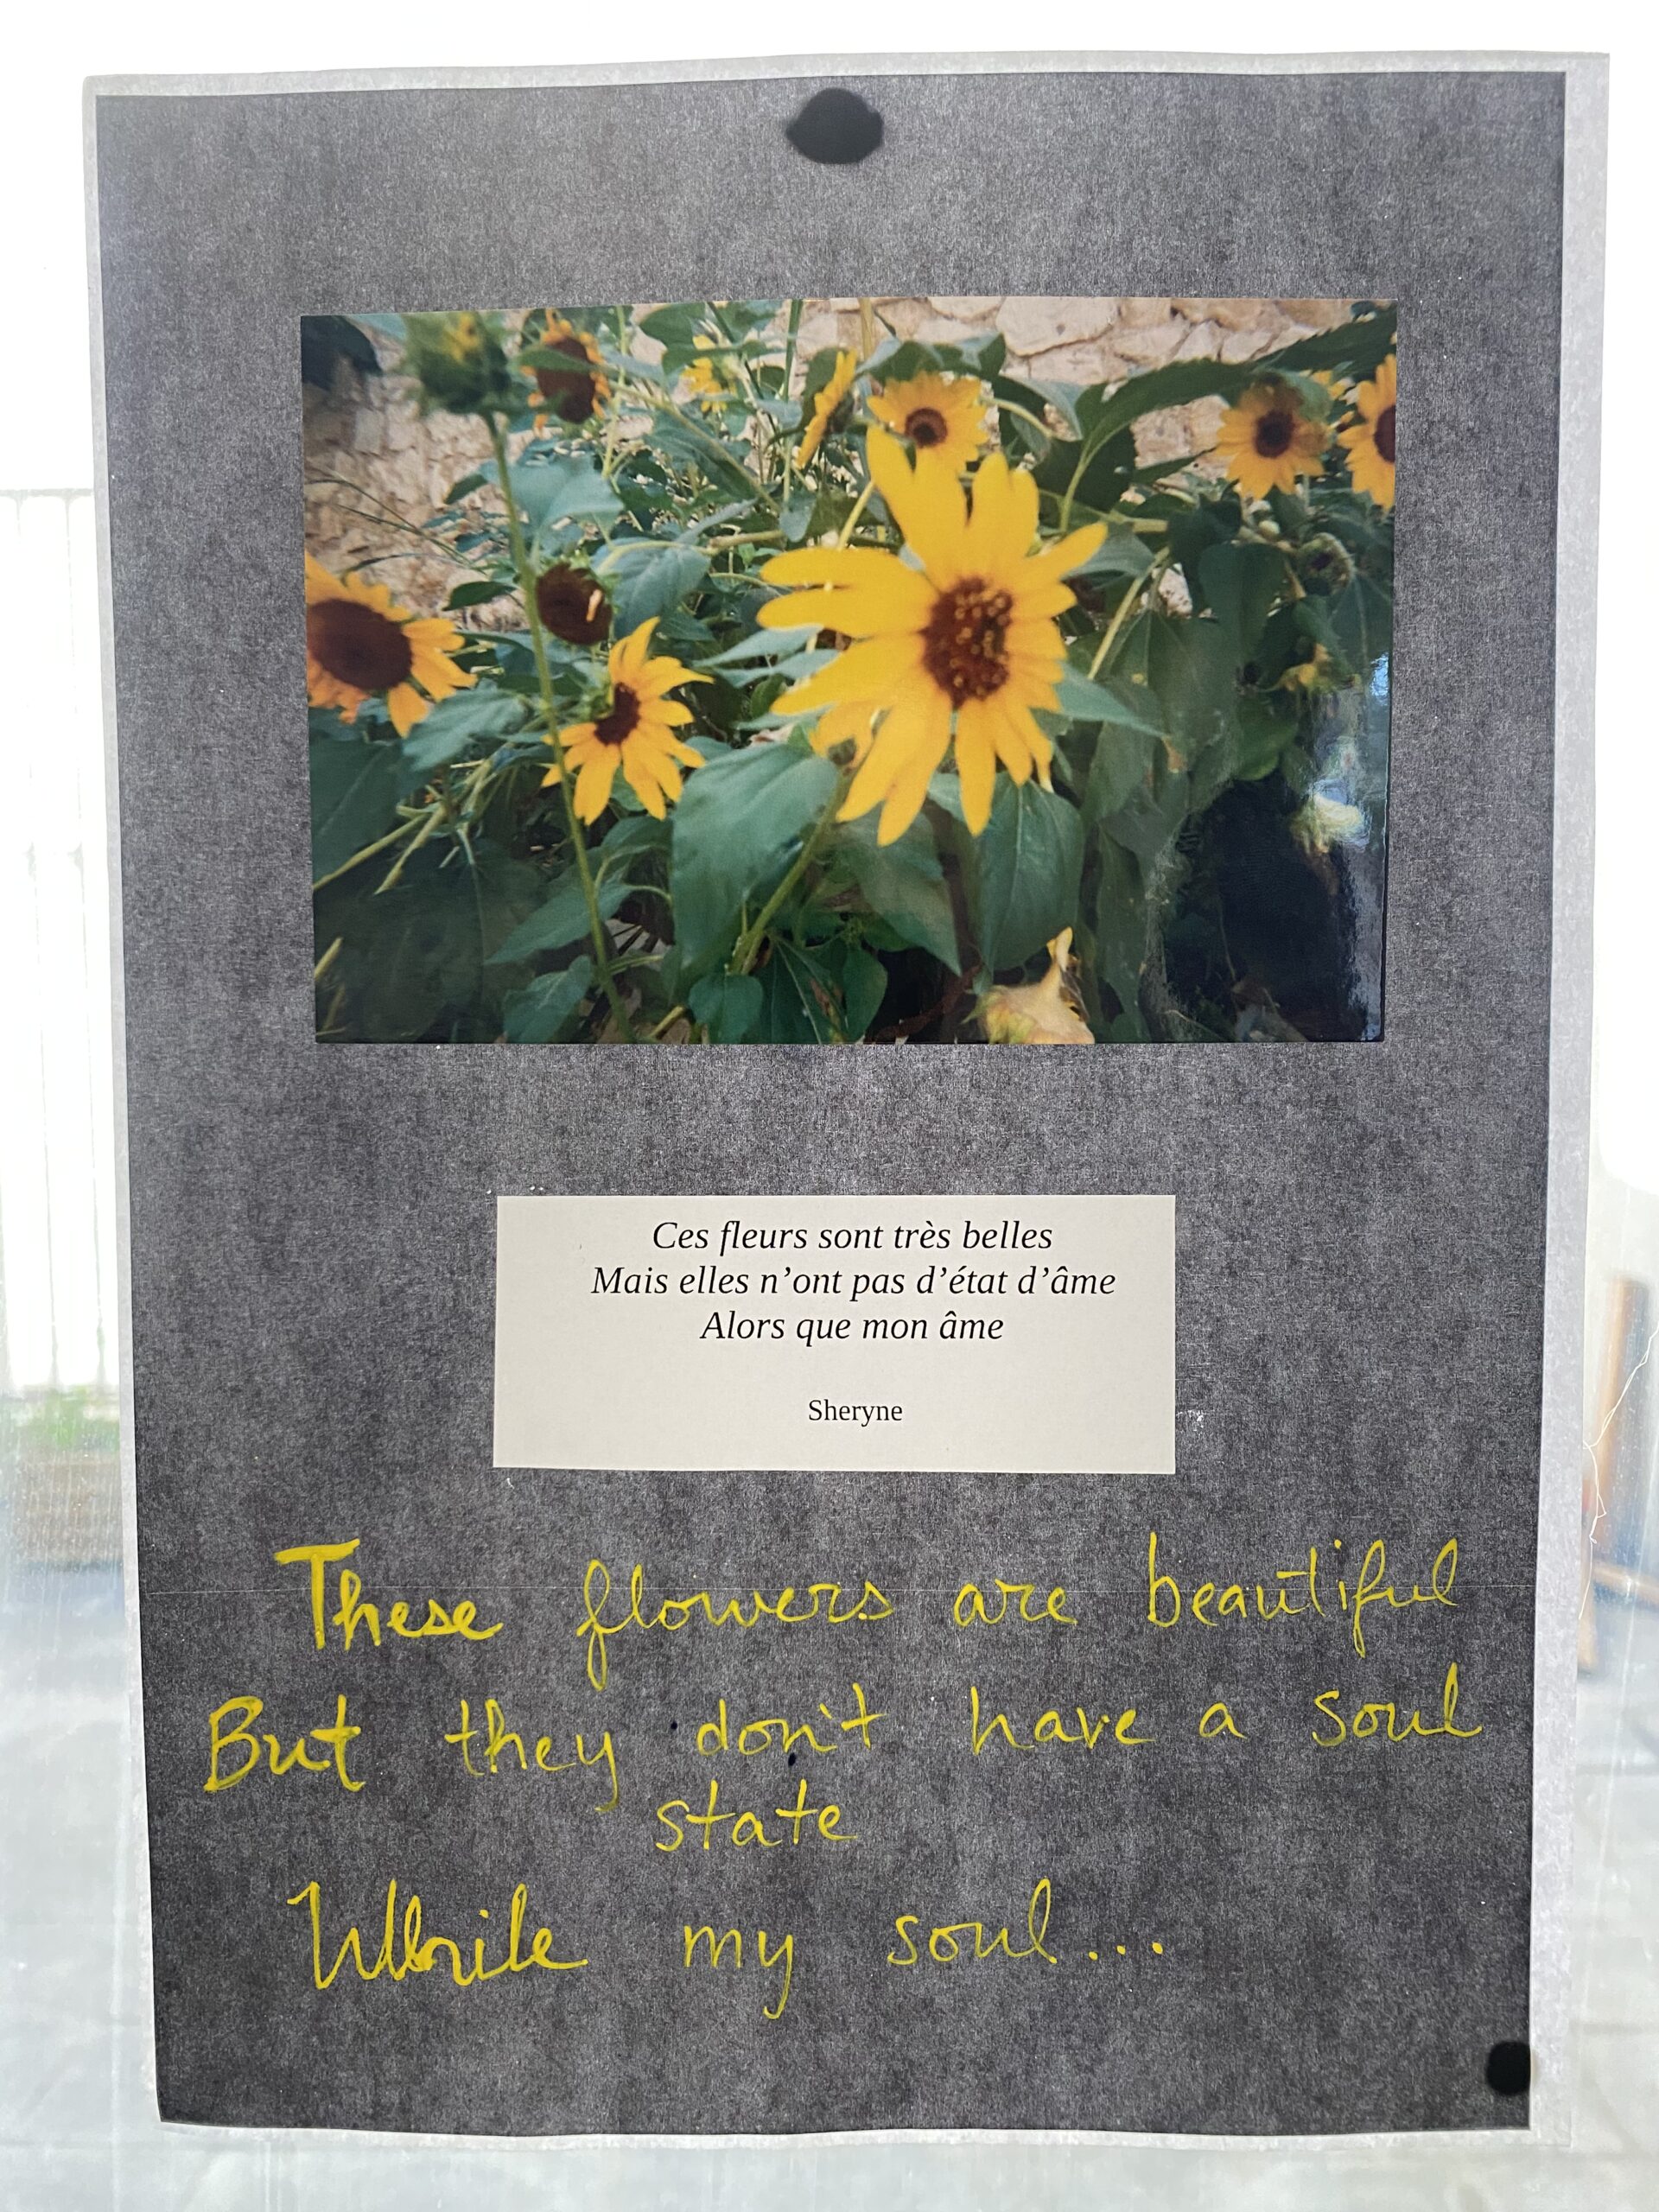 Ces fleurs sont très belles
Mais elles n’ont pas d’état d’âme
Alors que mon âme
Sheryne
These flowers are beautiful
But they don't have a soul
state
While my soul...